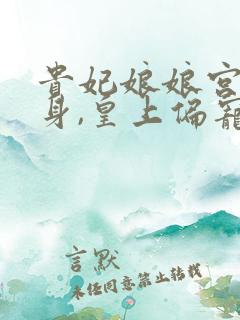 貴妃娘娘宮
身,皇上偏寵
言默
未经同意禁止转载